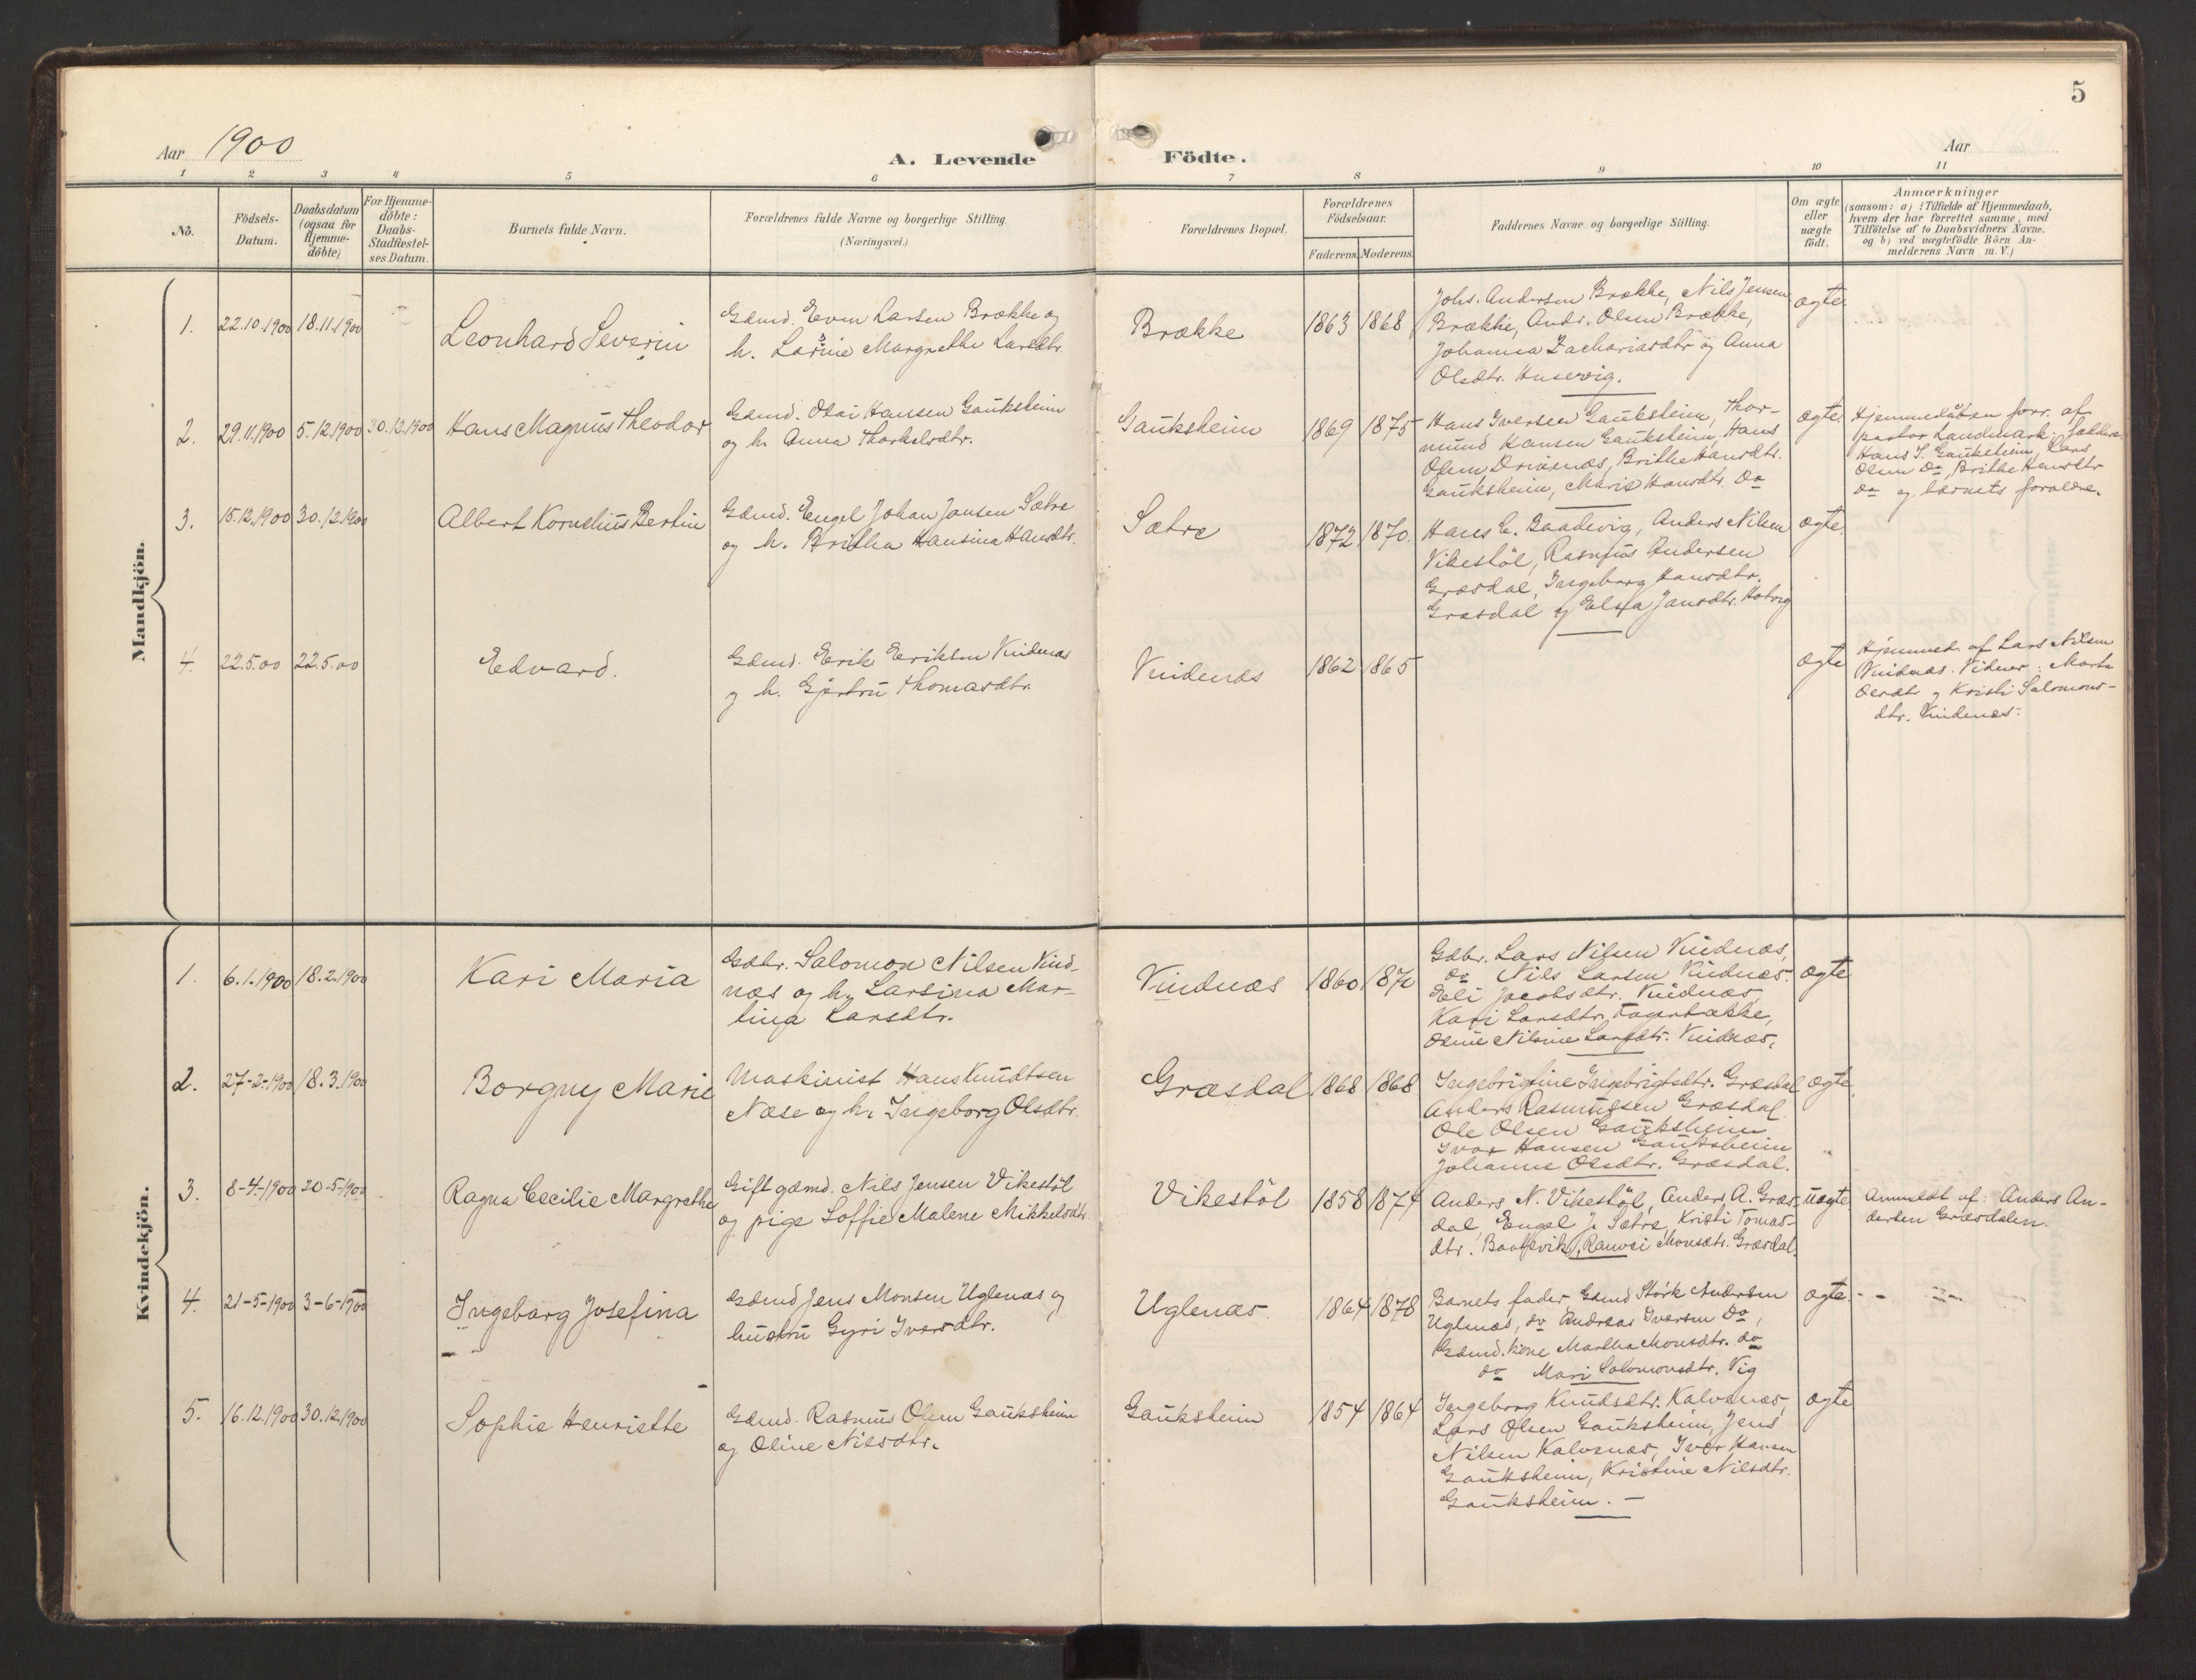 5
Aar 1900
A. Levende Födte.
Aar
1 2 3 4 5 6 7 8 9 10 11
No.
Födsels-
Datum.
Daabsdatum
(ogsaa for
Hjemme-
döbte)
For Hjemme-
döbte:
Daabs-
Stadfæstel-
ses Datum.
Barnets fulde Navn.
Forældrenes fulde Navne og borgerlige Stilling.
(Næringsvei.)
Forældrenes Bopæl.
Forældrenes
Födselsaar.
Faderens.
Moderens.
Faddernes Navne og borgerlige Stilling.
Om ægte
eller
uægte
födt.
Anmærkninger
(saasom: a) i Tilfælde af Hjemmedaab,
hvem der har forrettet samme, med
Tilföielse af to Daabsvidners Navne.
og b) ved uægtefödte Börn An-
melderens Navn m. V.)
Mandkjön.
1. 22.10.1900 18.11.1900
Leonhard Severin
Gdmd. Even Larsen Brække og
h. Larsine Margrethe Larsdtr.
Brække
1863 1868
Johs. Andersen Brække, Nils Jensen
Brække, Andr. Olsen Brække,
Johanna Zachariasdtr og Anna
Olsdtr. Husevig.
ægte
2. 29.11.1900 5.12.1900 30.12.1900
Hans Magnus Theodor
Gdmd. Otai Hansen Gauksheim
og h. Anna Thorkelsdtr.
Gauksheim
1869 1875
Hans Iversen Gauksheim, Thor-
mund Hansen Gauksheim, Hans
Olsen Drivenæs, Brithe Hansdtr.
Gauksheim, Marie Hansdtr. Do
ægte.
Hjemmedåben forr. af
pastor Landmark. faddere:
Hans I. Gauksheim, Lars
Olsen Do, Brithe Hansdtr
Do og barnets forældre.
3. 15.12.1900 30.12.1900
Albert Kornelius Bertin
Gdmd. Engel Johan Jansen Sætre
og h. Britha Hansina Hansdtr.
Sætre
1872 1870.
Hans C. Baadevig, Anders Nilsen
Vikestöl, Rasmus Andersen
Græsdal, Ingeborg Hansdtr.
Græsdal og Elsa Jansdtr. Hovig
ægte.
4. 22.5.00 22.5.00
Edvard.
Gdmd. Erik Eriksen Vindenæs
og h. Gjertru Thomasdtr.
Vindenæs
1862 1865
ægte
Hjemmed. af Lars Nilsen
Vindenæs. Vidner: Marta
Olsdtr og Kristi Salomons-
dtr. Vindenæs.
Kvindekjön.
1. 6.1.1900 18.2.1900
Kari Maria
Gdbr. Salomon Nilsen Vind-
næs og h. Larsina Mar-
tina Larsdtr.
Vindnæs
1860 1870
Gdbr. Lars Nilsen Vindnæs,
do Nils Larsen Vindnæs.
Eli Jacobsdtr. Vindnæs,
Kari Larsdtr. Fagerbakke,
Oline Nilsine Larsdtr. Vindnæs.
ægte
2. 27-2-1900 18.3.1900
Borgny Marie
Maskinist Hans Knudtsen
Næse og h. Ingeborg Olsdtr.
Græsdal
1868 1868
Ingebrigtine Ingebrigtsdtr. Græsdal
Anders Rasmussen Græsdal.
Ole Olsen Gauksheim
Ivar Hansen Gauksheim
Johanne Olsdtr. Græsdal.
ægte.
3. 8-4-1900 20-5-1900
Ragna Cecilie Margrethe
Gift gdmd. Nils Jensen Vikestöl
og pige Soffie Malene Mikkelsdtr
Vikestöl
1858 1874
Anders N. Vikestöl, Anders A. Græs-
dal, Engel J. Sætre, Kristi Tomas-
dtr. Baadsvik, Ranvei Monsdtr. Græsdal.
uægte
Anmeldt af: Anders An-
dersen Græsdalen.
4. 21-5-1900 3-6-1900
Ingeborg Josefina
Gdmd Jens Monsen Uglenæs og
hustru Gyri Iversdtr.
Uglenæs.
1864 1878
Barnets fader Gdmd Störk Andersen
Uglenæs, do Andreas Iversen Do,
Gdmd. kone Martha Monsdtr. do
do Mari Salomonsdtr. Vig
ægte.
5. 16.12.1900 30.12.1900
Sophie Henriette
Gdmd. Rasmus Olsen Gauksheim
og Oline Nilsdtr.
Gauksheim
1854 1864
Ingeborg Knudsdtr. Kalvenæs,
Lars Olsen Gauksheim, Jens
Nilsen Kalvenæs, Iver Hansen
Gauksheim, Kristine Nilsdtr.
Gauksheim. —
ægte